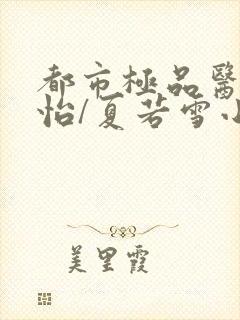 都市極品醫
怡/夏若雪小
美里霞